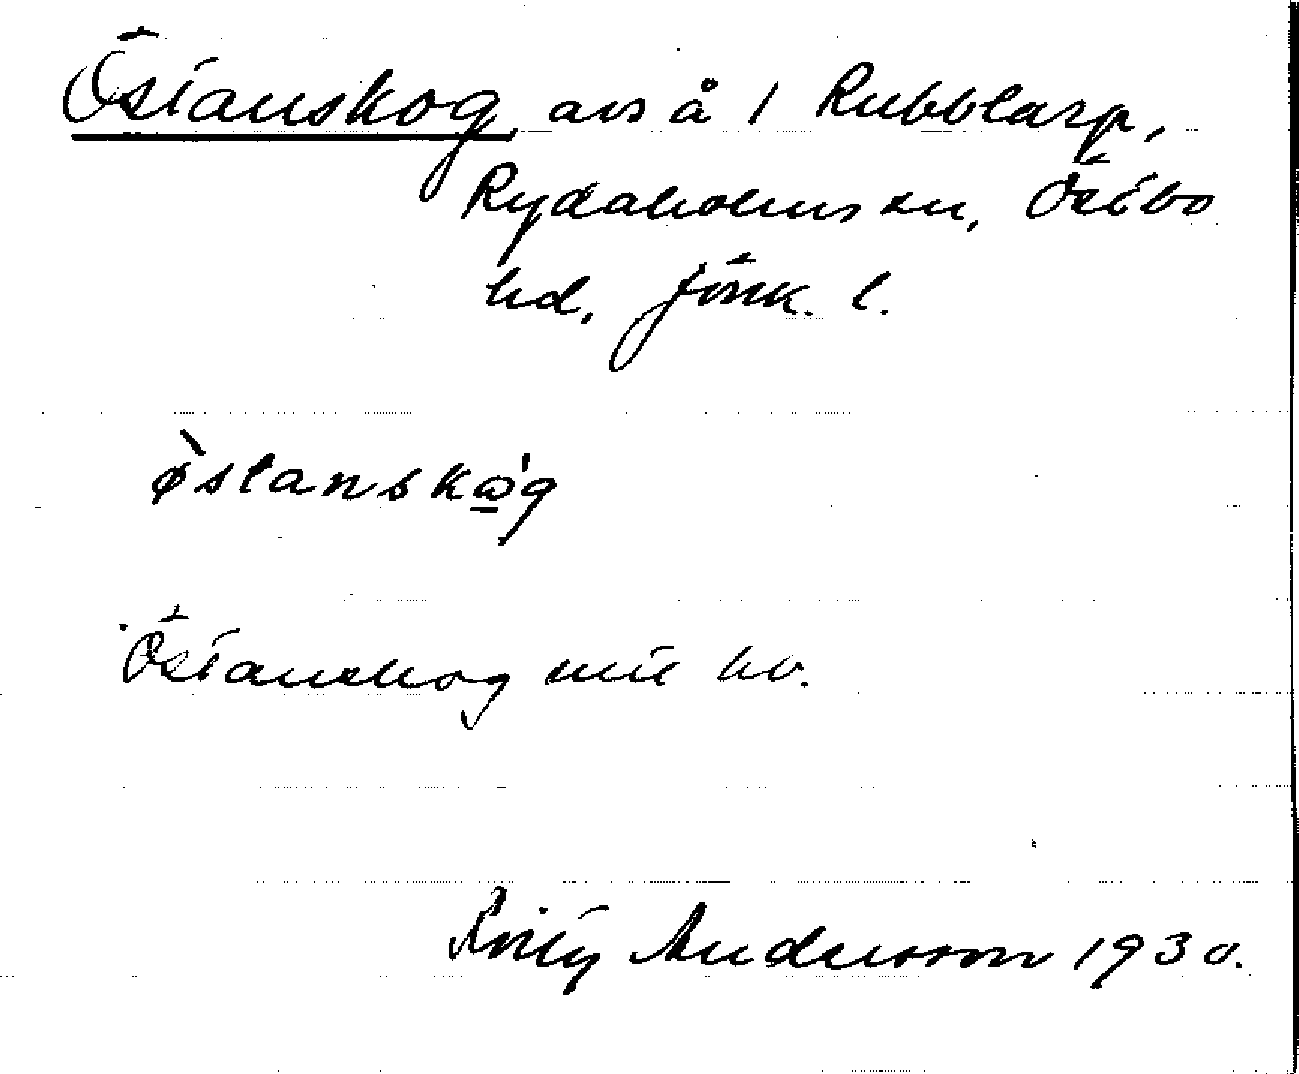 Östanskog, avs å 1 Rubblarp,
Rydaholms sn, Östbo
hd, Jönk. l.
østanskωg
Östanskog mtl kv.
Andersson 1930.